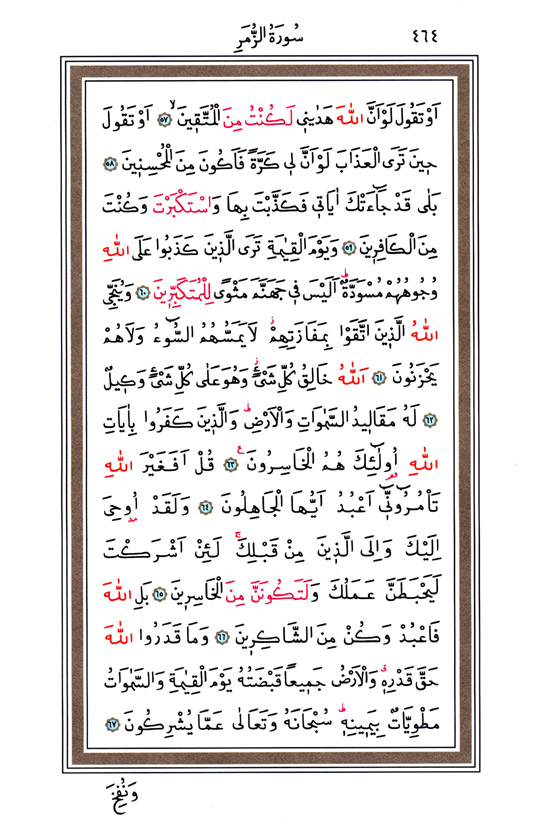 ٤٦٤ سُورَةُ الزُّمَرِ
اَوْ تَقُولَ لَوْ اَنَّ اللّٰهَ هَدٰينٖى لَكُنْتُ مِنَ الْمُتَّقٖينَۙ ﴿٥٧﴾ اَوْ تَقُولَ
حٖينَ تَرَى الْعَذَابَ لَوْ اَنَّ لٖى كَرَّةً فَاَكُونَ مِنَ الْمُحْسِنٖينَ ﴿٥٨﴾
بَلٰى قَدْ جَٓاءَتْكَ اٰيَاتٖى فَكَذَّبْتَ بِهَا وَاسْتَكْبَرْتَ وَكُنْتَ
مِنَ الْكَافِرٖينَ ﴿٥٩﴾ وَيَوْمَ الْقِيٰمَةِ تَرَى الَّذٖينَ كَذَبُوا عَلَى اللّٰهِ
وُجُوهُهُمْ مُسْوَدَّةٌؕ اَلَيْسَ فٖى جَهَنَّمَ مَثْوًى لِلْمُتَكَبِّرٖينَ ﴿٦٠﴾ وَيُنَجِّى
اللّٰهُ الَّذٖينَ اتَّقَوْا بِمَفَازَتِهِمْؗ لَا يَمَسُّهُمُ السُّٓوءُ وَلَا هُمْ
يَحْزَنُونَ ﴿٦١﴾ اَللّٰهُ خَالِقُ كُلِّ شَیْءٍؗ وَهُوَ عَلٰى كُلِّ شَیْءٍ وَكٖيلٌ
﴿٦٢﴾ لَهُ مَقَالٖيدُ السَّمٰوَاتِ وَالْاَرْضِؕ وَالَّذٖينَ كَفَرُوا بِاٰيَاتِ
اللّٰهِ اُولٰٓئِكَ هُمُ الْخَاسِرُونَࣖ ﴿٦٣﴾ قُلْ اَفَغَيْرَ اللّٰهِ
تَاْمُرُٓونّٖٓى اَعْبُدُ اَيُّهَا الْجَاهِلُونَ ﴿٦٤﴾ وَلَقَدْ اُوحِىَ
اِلَيْكَ وَاِلَى الَّذٖينَ مِنْ قَبْلِكَۚ لَئِنْ اَشْرَكْتَ
لَيَحْبَطَنَّ عَمَلُكَ وَلَتَكُونَنَّ مِنَ الْخَاسِرٖينَ ﴿٦٥﴾ بَلِ اللّٰهَ
فَاعْبُدْ وَكُنْ مِنَ الشَّاكِرٖينَ ﴿٦٦﴾ وَمَا قَدَرُوا اللّٰهَ
حَقَّ قَدْرِهٖؗ وَالْاَرْضُ جَمٖيعًا قَبْضَتُهُ يَوْمَ الْقِيٰمَةِ وَالسَّمٰوَاتُ
مَطْوِيَّاتٌ بِيَمٖينِهٖؕ سُبْحَانَهُ وَتَعَالٰى عَمَّا يُشْرِكُونَ ﴿٦٧﴾
وَنُفِخَ